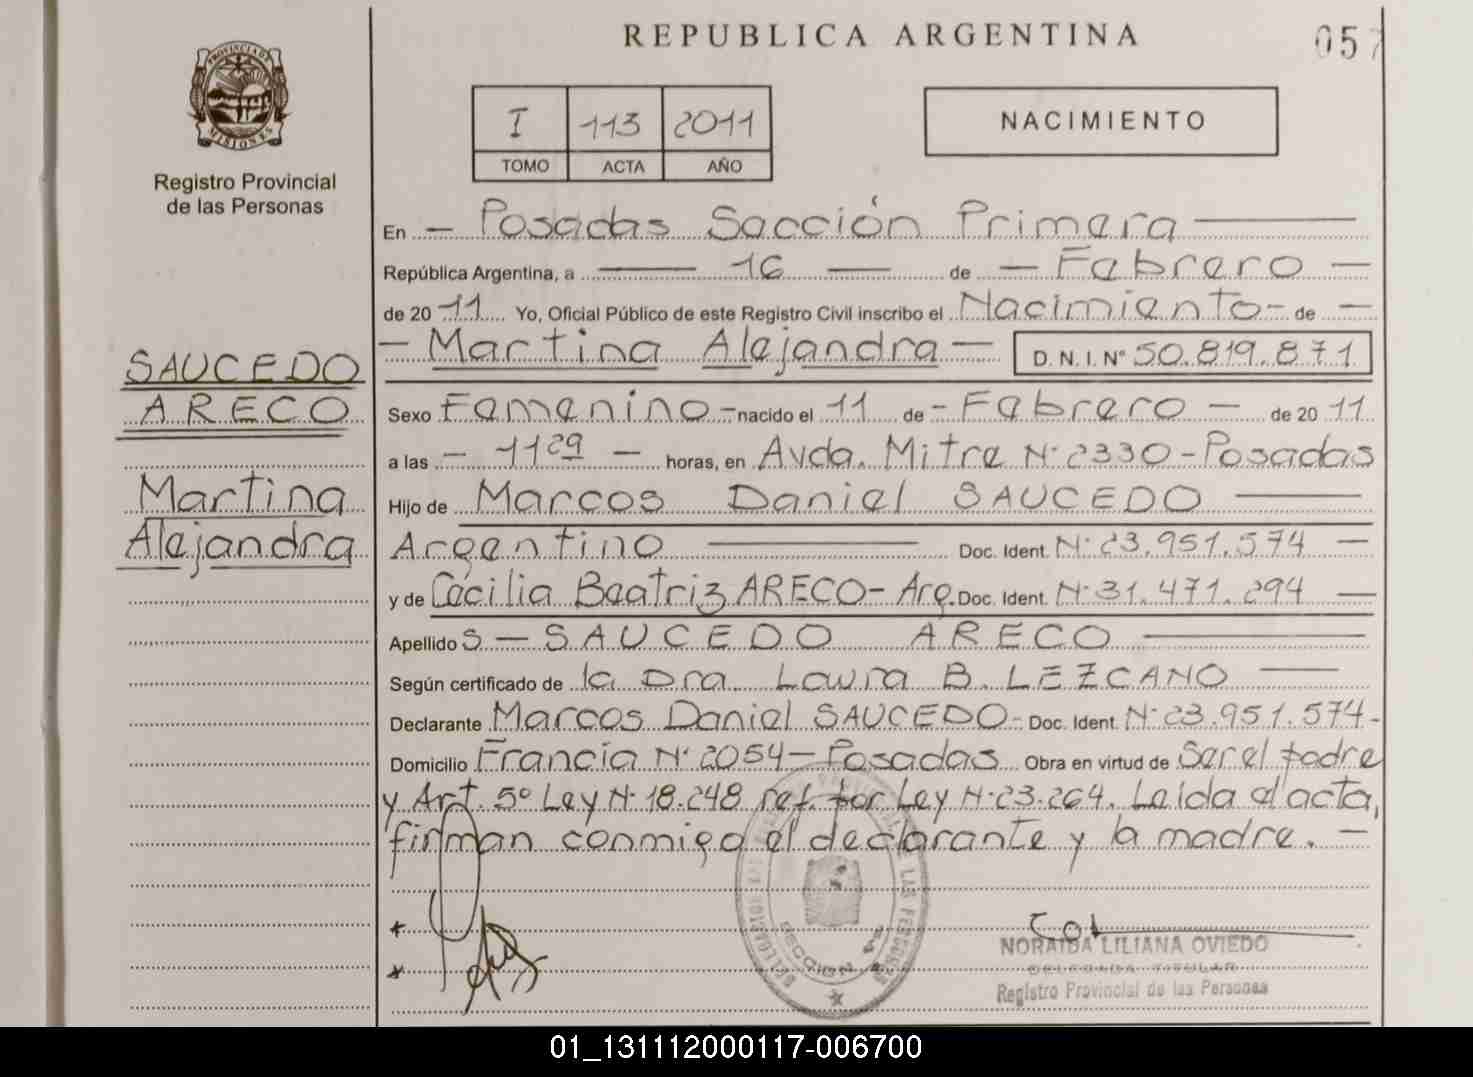 REPUBLICA ARGENTINA
057
PROVINCIA DE MISIONES
Registro Provincial
de las Personas
I 113 2011
TOMO ACTA AÑO
NACIMIENTO
En - Posadas Sección Primera
República Argentina, a 16 de - Febrero -
de 2011 Yo, Oficial Público de este Registro Civil inscribo el Nacimiento - de -
- Martina Alejandra - D. N. I. Nº 50.819.871
SAUCEDO
ARECO
Martina
Alejandra
Sexo Femenino - nacido el 11 de - Febrero - de 2011
a las - 11 29 - horas, en Avda. Mitre Nº 2330 - Posadas
Hijo de Marcos Daniel SAUCEDO
Argentino Doc. Ident. Nº 23.951.574 -
y de Cecilia Beatriz ARECO - Arg. Doc. Ident. Nº 31.471.294
Apellido s - SAUCEDO ARECO
Según certificado de la Dra Laura B. LEZCANO
Declarante Marcos Daniel SAUCEDO - Doc. Ident. Nº 23.951.574 -
Domicilio Francia Nº 2054 - Posadas Obra en virtud de Ser el padre
y Art. 5º Ley Nº 18.248 ref. por Ley Nº 23.264. Leída el acta,
firman conmigo el declarante y la madre. -
SECCION
NORAIDA LILIANA OVIEDO
DELEGADA TITULAR
Registro Provincial de las Personas
01_131112000117-006700